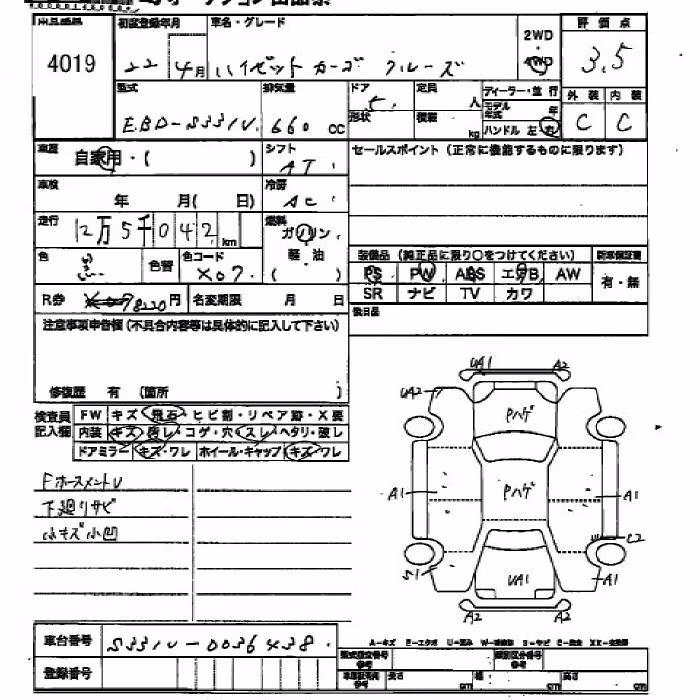 4019
初度登録年月 車名・グレード
22 4月 ハイゼットカーゴ クルーズ
2WD
4WD
評価点
3.5
型式 排気量 ドア 定員
EBD-S331V. 660 cc 5. 人
形状 積載 kg
ディーラー・並行
モデル年式 年
ハンドル 左 右
外装 内装
C C
車歴 自家用・( )
シフト AT
セールスポイント (正常に機能するものに限ります)
車検 年 月( 日)
冷房 AC
走行 12万5千042 km
燃料 ガソリン
軽油
( )
色 黒 色替 色コード X07.
装備品 (純正品に限り○をつけてください) 新車保証書
PS PW ABS エアB AW 有・無
SR ナビ TV カワ
R券 8220円 名変期限 月 日
後日品
注意事項申告欄 (不具合内容等は具体的に記入して下さい)
修復歴 有 (箇所 )
検査員記入欄
FW キズ・飛石・ヒビ割・リペア跡・X要
内装 キズ・汚レ・コゲ・穴・スレ・ヘタリ・破レ
ドアミラー キズ・ワレ ホイール・キャップ キズ・ワレ
Fホースメント U
下廻りサビ
小キズ小凹
UA1 A2
UA2
Pハゲ
Pハゲ
A1 A1
C2
S1 A1
UA1
A2 A2
車台番号 S331V-0036438.
登録番号
型式指定番号 類別区分番号
長さ cm 幅 cm 高さ cm